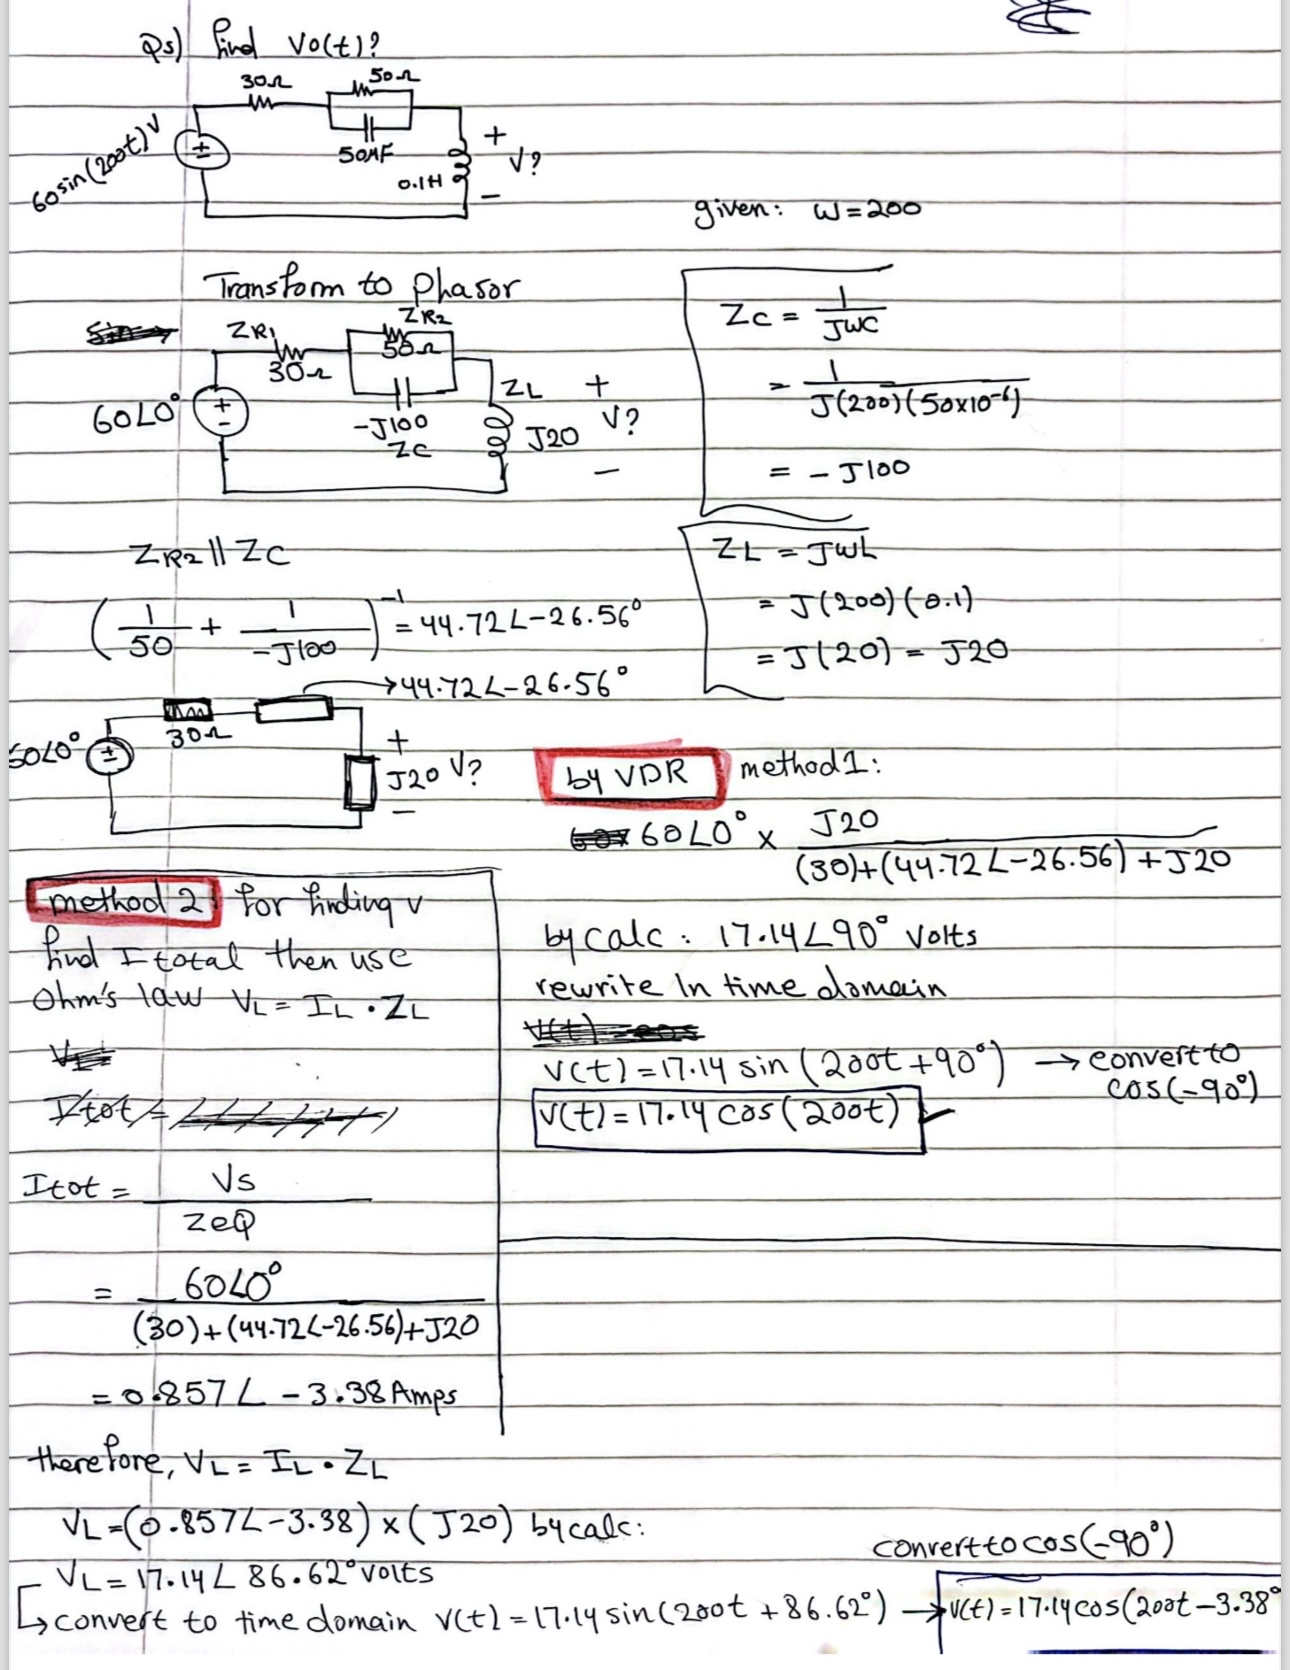 Qs) find Vo(t)?
30Ω
50Ω
60sin(200t) V
50µF
0.1H
+
V?
-
given: ω=200
Transform to phasor
ZR1
30Ω
ZR2
50Ω
60∠0°
-J100
ZC
ZL
J20
+
V?
-
ZC = 1/JWC
= 1/J(200)(50x10⁻⁶)
= - J100
ZL = JWL
= J(200)(0.1)
= J(20) = J20
ZR2 || ZC
(1/50 + 1/-J100)⁻¹ = 44.72∠-26.56°
→44.72∠-26.56°
60∠0°
30Ω
+
J20 V?
-
by VDR method1:
60∠0° x J20/(30)+(44.72∠-26.56)+J20
by calc: 17.14∠90° volts
rewrite In time domain
V(t)=17.14 sin(200t+90°) → convert to cos(-90°)
V(t)=17.14 cos(200t)
method 2 for finding v
find I total then use
Ohm's law VL = IL · ZL
Itot = Vs/ZeQ
= 60∠0°/(30)+(44.72∠-26.56)+J20
= 0.857∠-3.38 Amps
therefore, VL = IL · ZL
VL=(0.857∠-3.38)x(J20) by calc:
VL = 17.14∠86.62° volts
convert to cos(-90°)
↳ convert to time domain V(t) = 17.14 sin(200t +86.62°) → V(t)=17.14cos(200t-3.38°